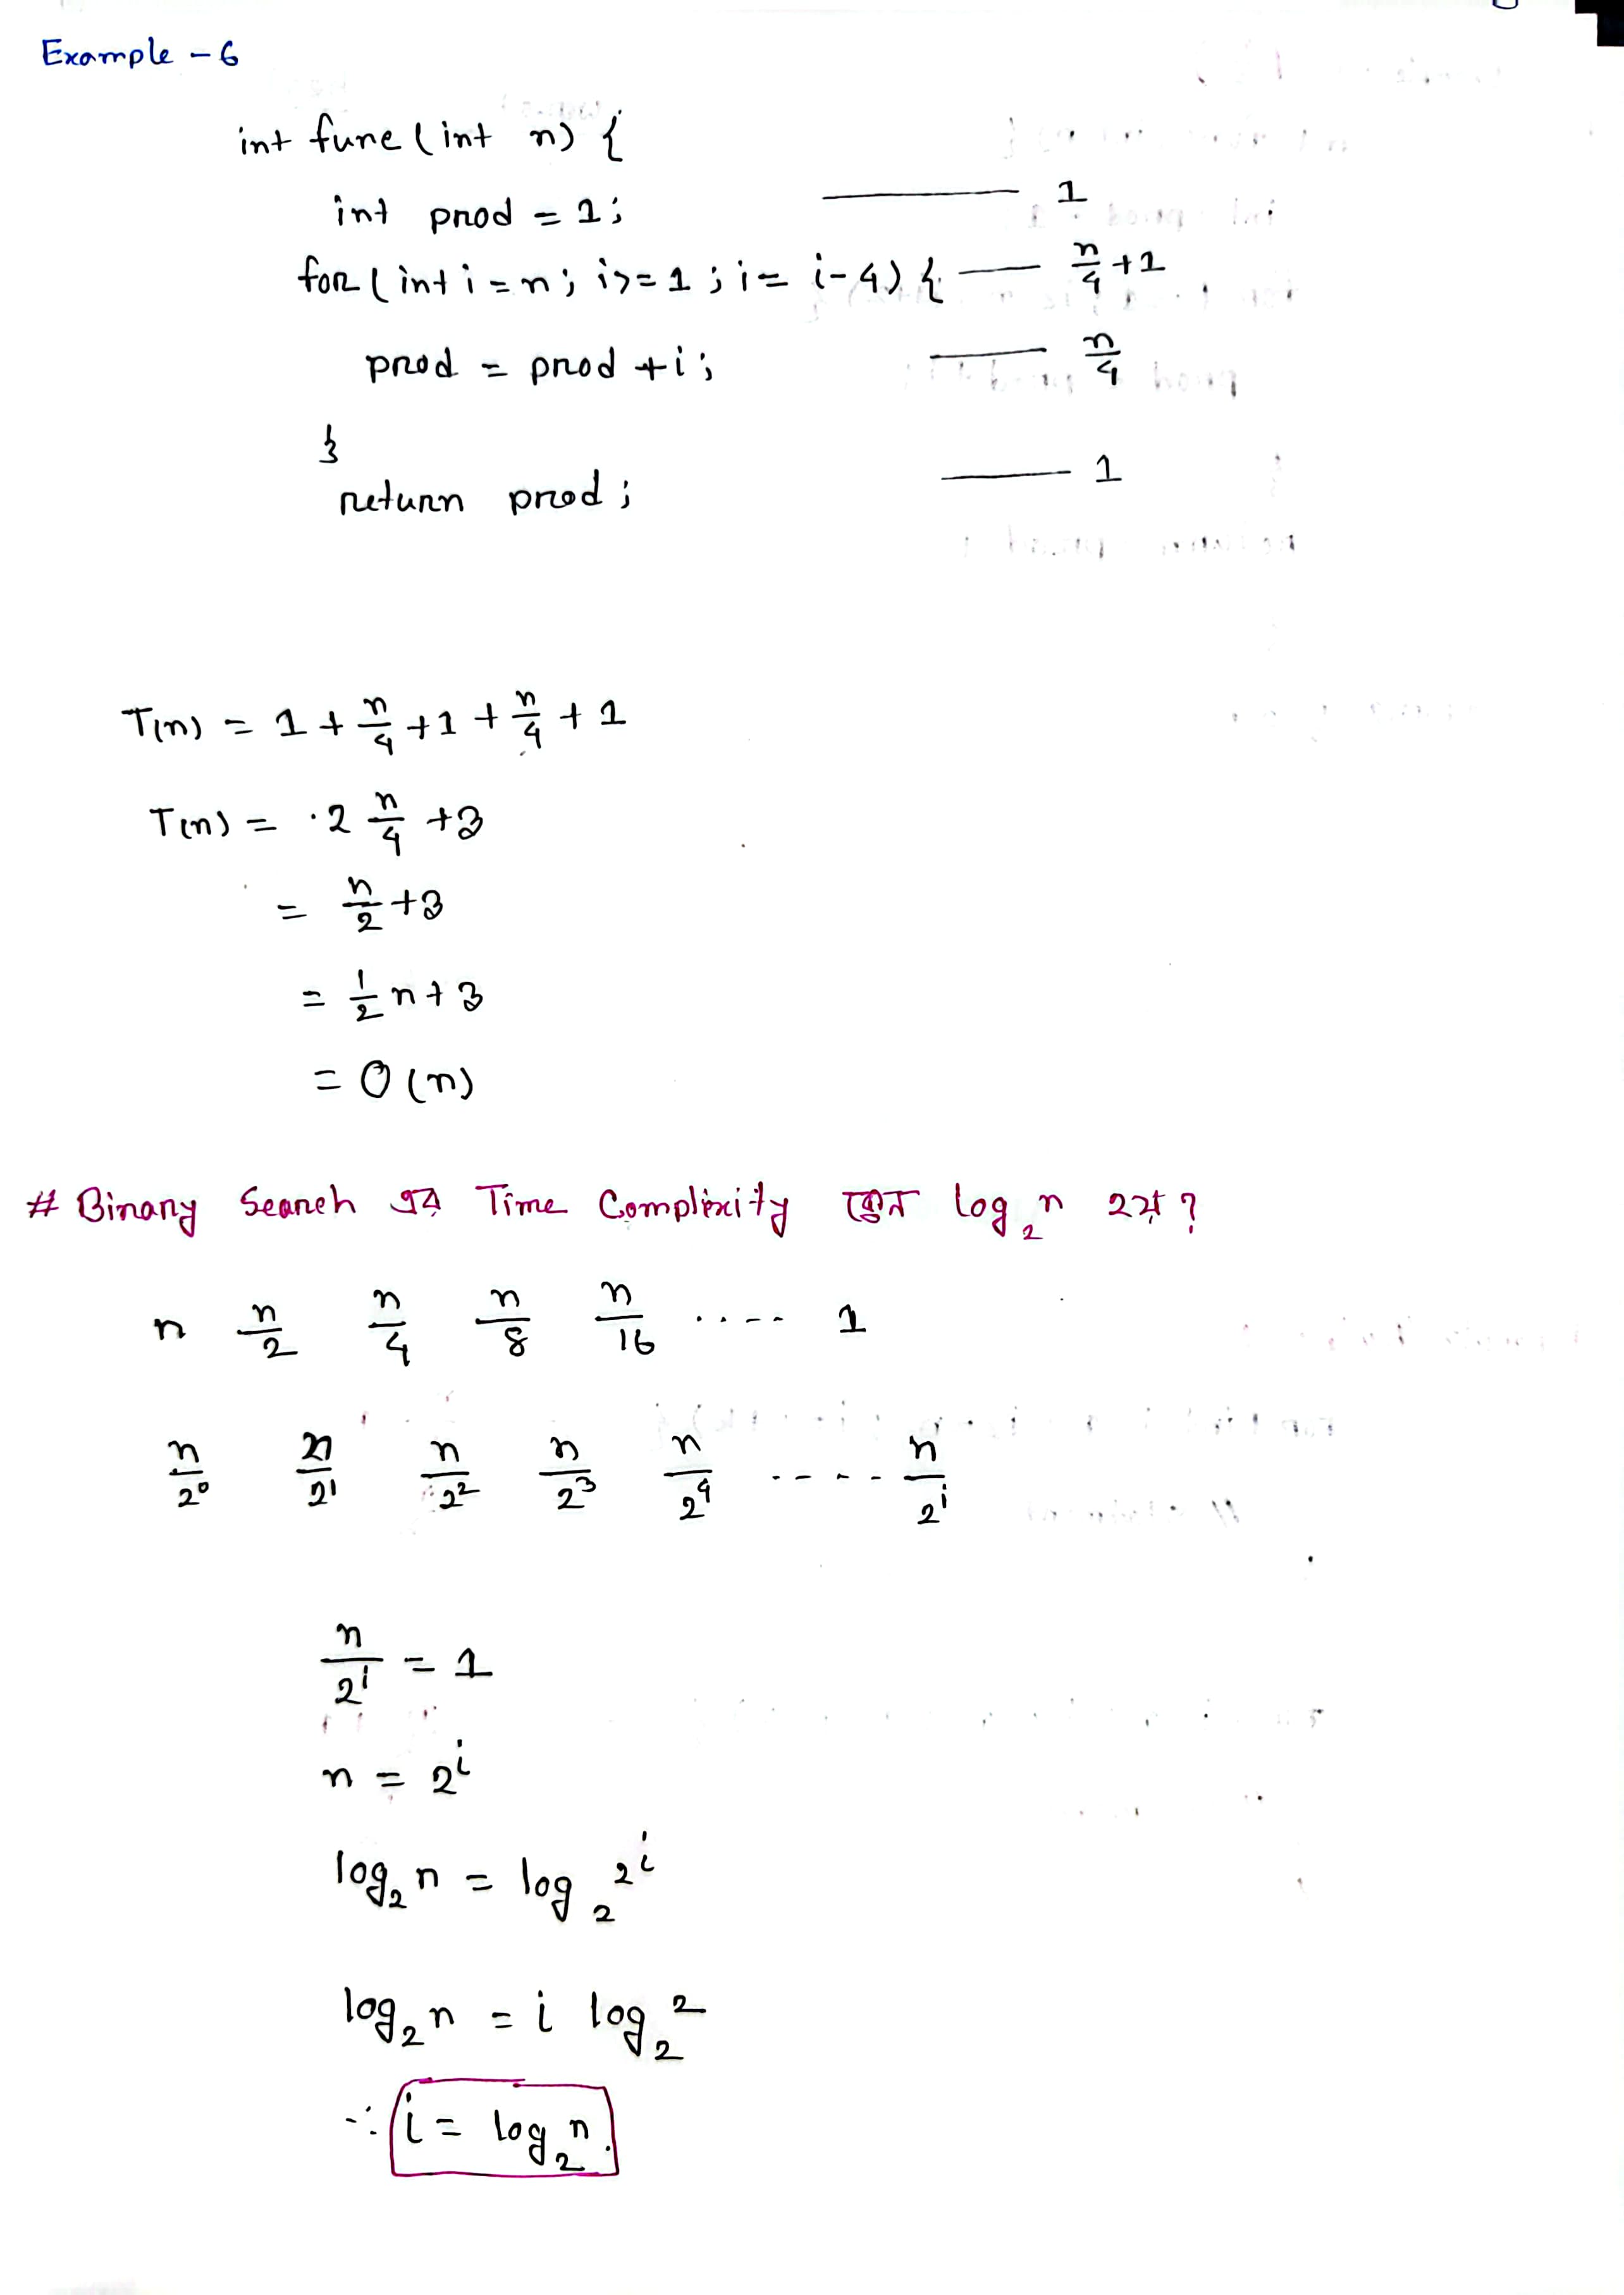 Example - 6
int func(int n) {
int prod = 1; —— 1
for(int i = n; i>=1; i = i-4) { —— n/4 + 1
prod = prod + i; —— n/4
}
return prod; —— 1
T(n) = 1 + n/4 + 1 + n/4 + 1
T(n) = 2 n/4 + 3
= n/2 + 3
= 1/2 n + 3
= O(n)
# Binary Search এর Time Complexity কেন log₂n হয়?
n n/2 n/4 n/8 n/16 ..... 1
n/2⁰ n/2¹ n/2² n/2³ n/2⁴ ..... n/2ⁱ
n/2ⁱ = 1
n = 2ⁱ
log₂n = log₂2ⁱ
log₂n = i log₂2
∴ i = log₂n.